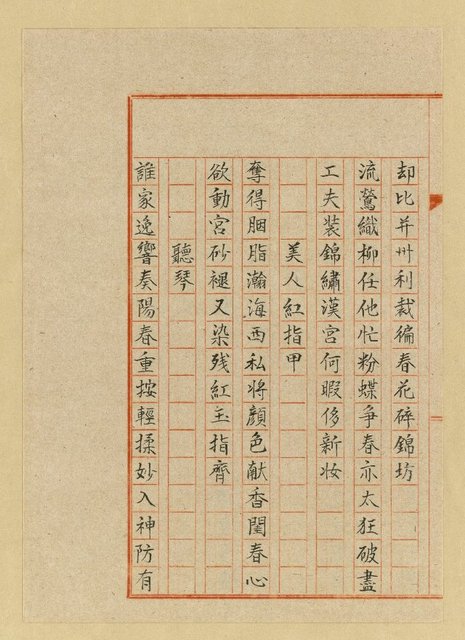 却比并州利裁徧春花碎錦坊
流鶯織柳任他忙粉蝶争春亦太狂破盡
工夫装錦繡漢宮何暇侈新妝
美人紅指甲
奪得胭脂瀚海西私将顏色献香閨春心
欲動宮砂褪又染残紅玉指齊
聽琴
誰家逸響奏陽春重按輕揉妙入神防有